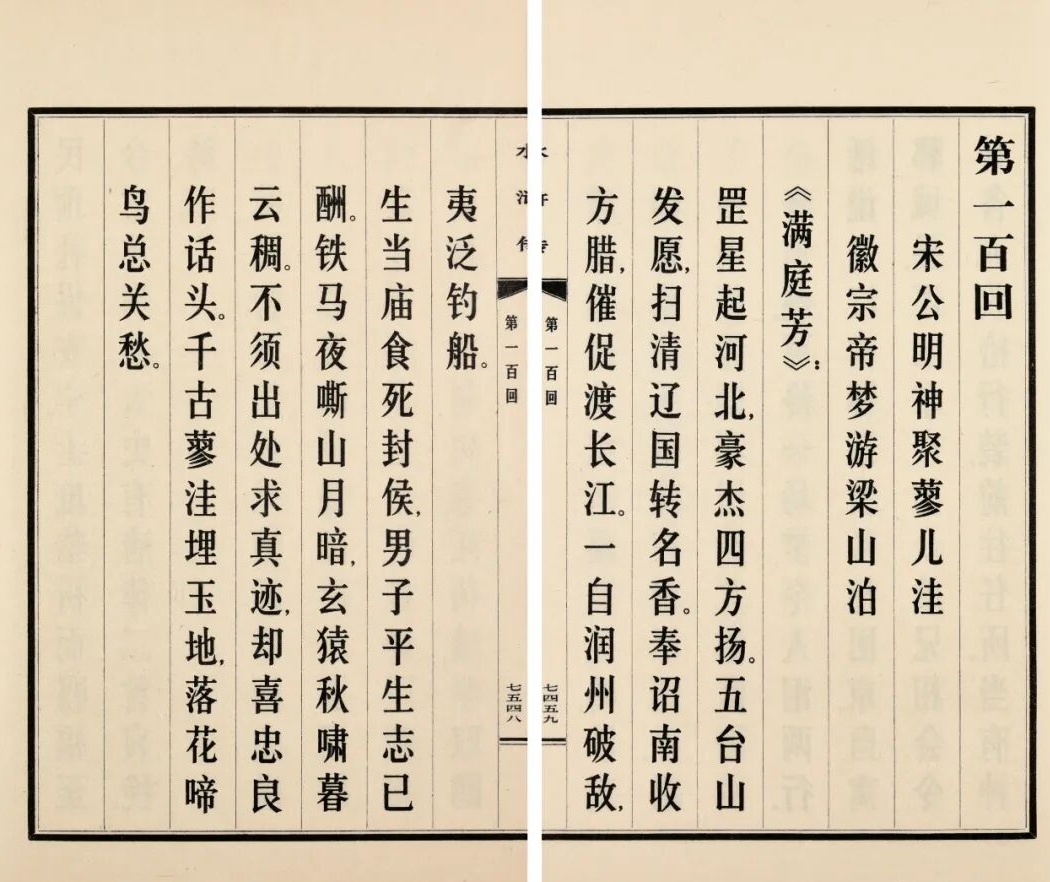 第一百回
宋公明神聚蓼儿洼
徽宗帝梦游梁山泊
《满庭芳》:
罡星起河北,豪杰四方扬。五台山
发愿,扫清辽国转名香。奉诏南收
方腊,催促渡长江。一自润州破敌,
第一百回
七四五九
水浒传
第一百回
七五四八
夷泛钓船。
生当庙食死封侯,男子平生志已
酬。铁马夜嘶山月暗,玄猿秋啸暮
云稠。不须出处求真迹,却喜忠良
作话头。千古蓼洼埋玉地,落花啼
鸟总关愁。